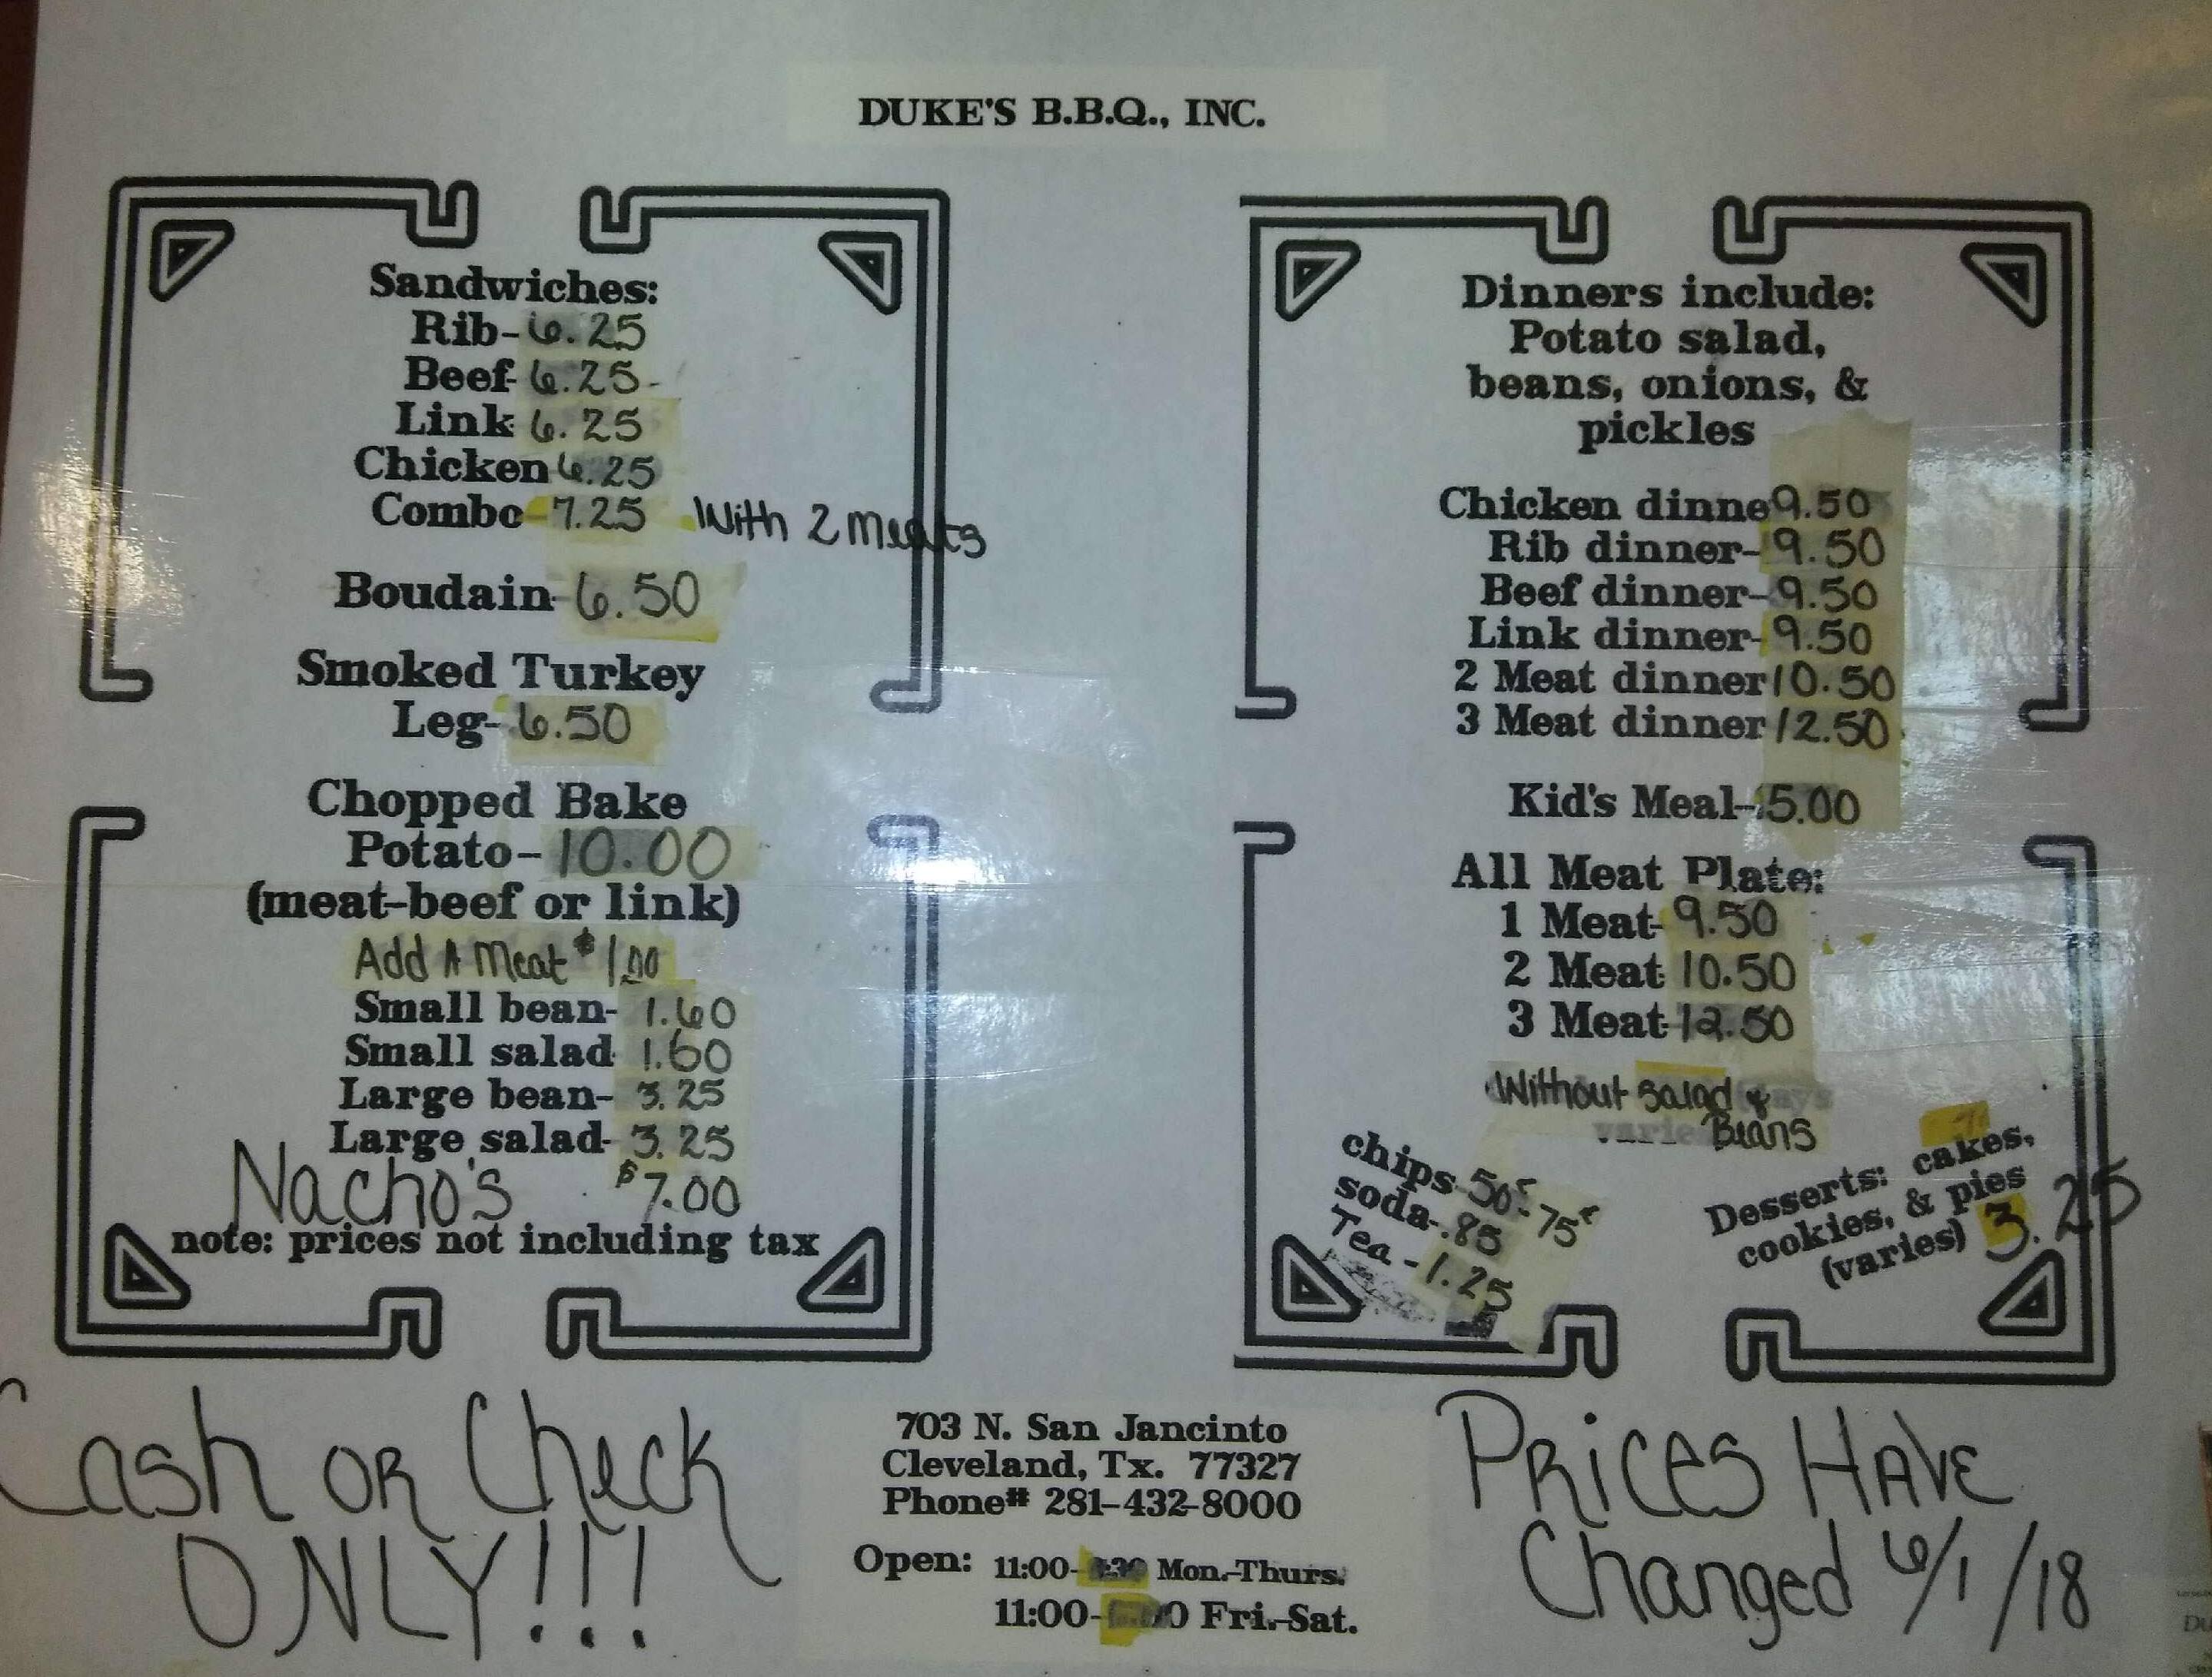 DUKE'S B.B.Q., INC.
Sandwiches:
Rib-6.25
Beef-6.25-
Link 6.25
Chicken 6.25
Combo-7.25 With 2 Meats
Boudain-6.50
Smoked Turkey
Leg-6.50
Chopped Bake
Potato-10.00
(meat-beef or link)
Add A Meat $1.00
Small bean-1.60
Small salad 1.60
Large bean-3.25
Large salad-3.25
Nacho's $7.00
note: prices not including tax
Dinners include:
Potato salad,
beans, onions, &
pickles
Chicken dinne 9.50
Rib dinner-9.50
Beef dinner-9.50
Link dinner-9.50
2 Meat dinner 10.50
3 Meat dinner 12.50
Kid's Meal-5.00
All Meat Plate:
1 Meat-9.50
2 Meat 10.50
3 Meat-12.50
Without Salad &
Beans
chips-50¢-75¢
soda-.85
Tea-1.25
Desserts: cakes,
cookies, & pies
(varies) 3.25
Cash OR Check
ONLY!!!
703 N. San Jancinto
Cleveland, Tx. 77327
Phone# 281-432-8000
Open: 11:00- Mon.-Thurs.
11:00- Fri.-Sat.
PRiCES HAVE
Changed 6/1/18